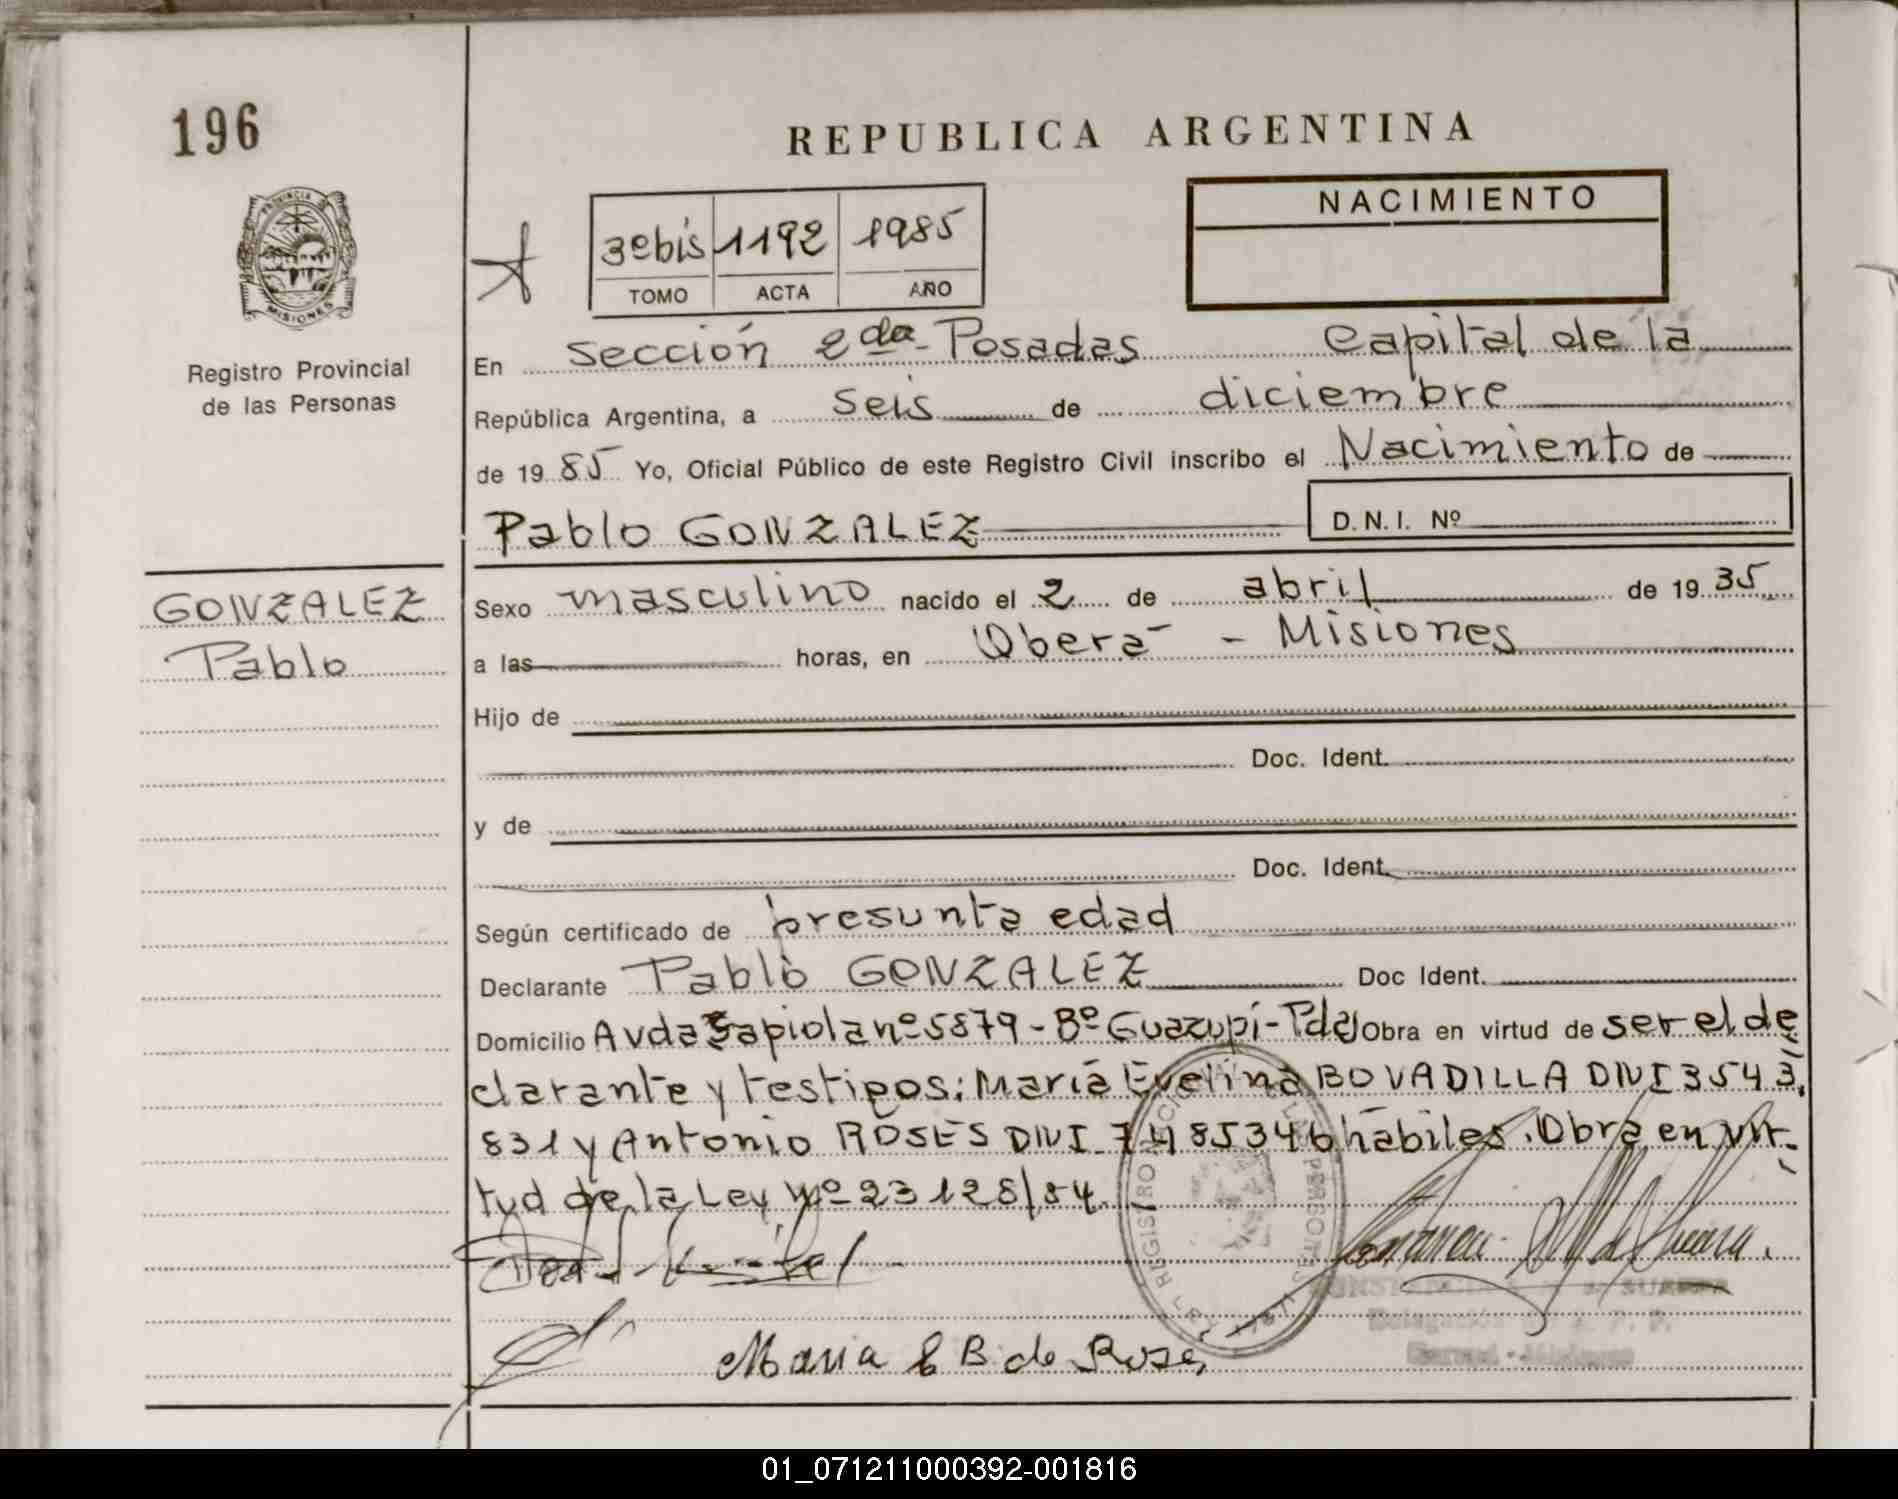 196
REPUBLICA ARGENTINA
PROVINCIA DE
MISIONES
Registro Provincial
de las Personas
3º bis 1192 1985
TOMO ACTA AÑO
NACIMIENTO
En sección 2da - Posadas Capital de la
República Argentina, a seis de diciembre
de 1985 Yo, Oficial Público de este Registro Civil inscribo el Nacimiento de
Pablo GONZALEZ D.N.I. Nº
GONZALEZ
Pablo
Sexo masculino nacido el 2 de abril de 1935
a las horas, en Oberá - Misiones
Hijo de
Doc. Ident.
y de
Doc. Ident.
Según certificado de presunta edad
Declarante Pablo GONZALEZ Doc Ident.
Domicilio Avda Sapiola nº 5879 - Bº Guazupí - Pdas Obra en virtud de ser el de
clarante y testigos: María Evelina BOVADILLA DNI 3543.
831 y Antonio ROSES DNI 7485346 hábiles. Obra en vir-
tud de la Ley Nº 23128/84.
REGISTRO PERSONAS
Maria E B de Roses
01_071211000392-001816